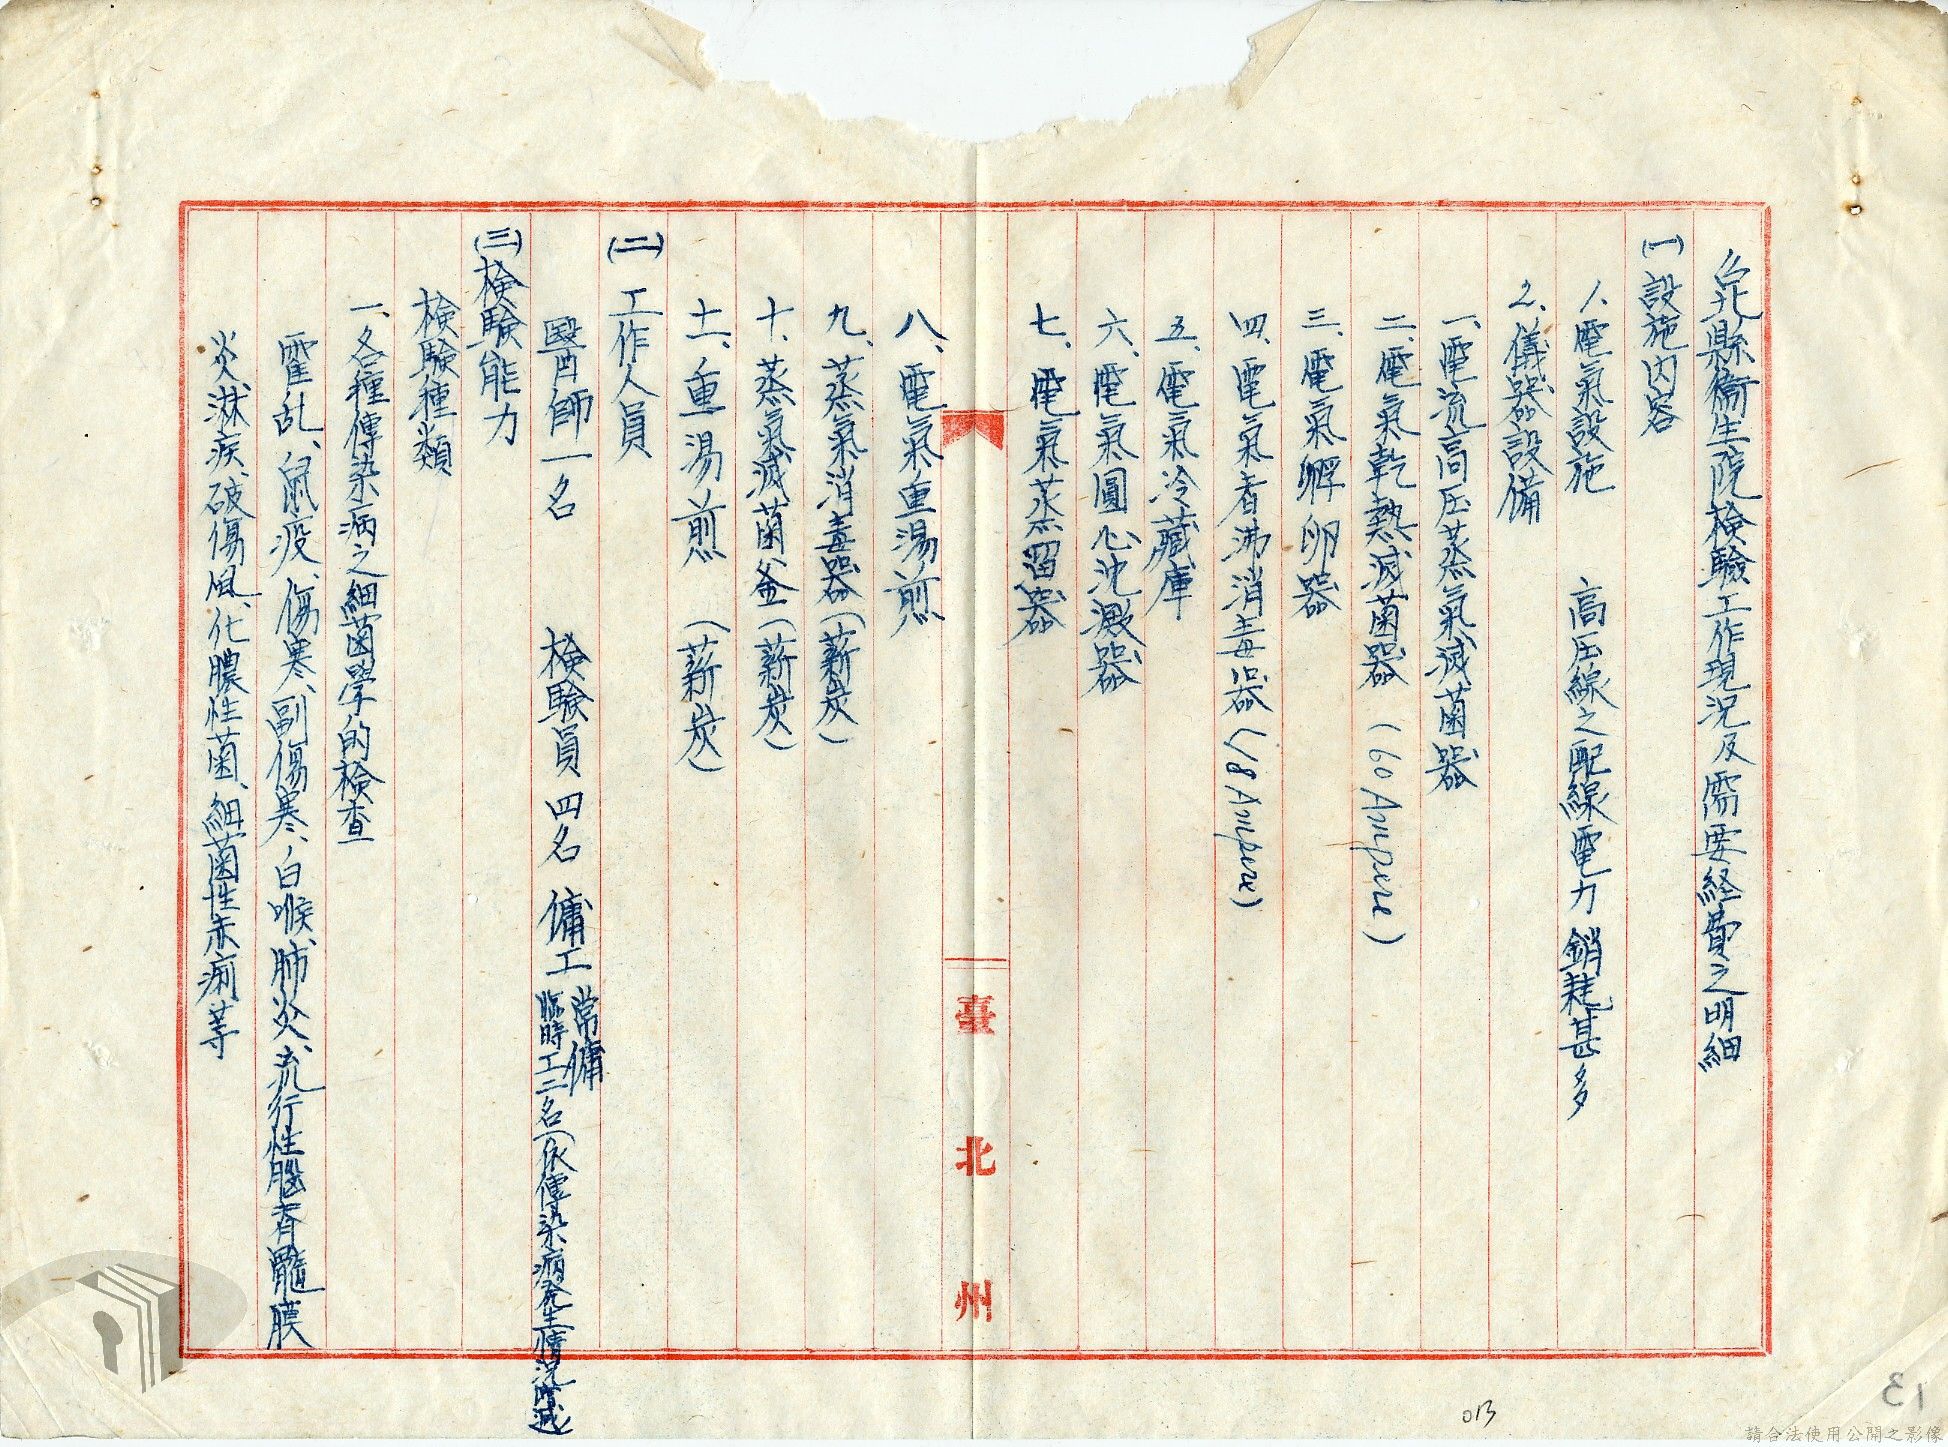 台北縣衛生院検驗工作現況及需要経費之明細
(一)設施内容
1、電氣設施　高圧線之配線電力銷耗甚多
2、儀器設備
一、電流高圧蒸氣滅菌器
二、電氣乾熱滅菌器(60 Ampere)
三、電氣孵卵器
四、電氣煮沸消毒器(18 Ampere)
五、電氣冷藏庫
六、電氣圓心沈澱器
七、電氣蒸溜器
八、電氣重湯煎
九、蒸氣消毒器(薪炭)
十、蒸氣滅菌釜(薪炭)
十一、重湯煎(薪炭)
(二)工作人員
醫師一名　検驗員四名　傭工 常傭 臨時工二名(依傳染病発生情況增減
(三)検驗能力
検驗種類
一、各種傳染病之細菌學的検查
霍乱、鼠疫、傷寒、副傷寒、白喉、肺炎、流行性腦脊髓膜
炎、淋疾、破傷風、化膿性菌、細菌性赤痢等
臺北州
013
13
請合法使用公開之影像